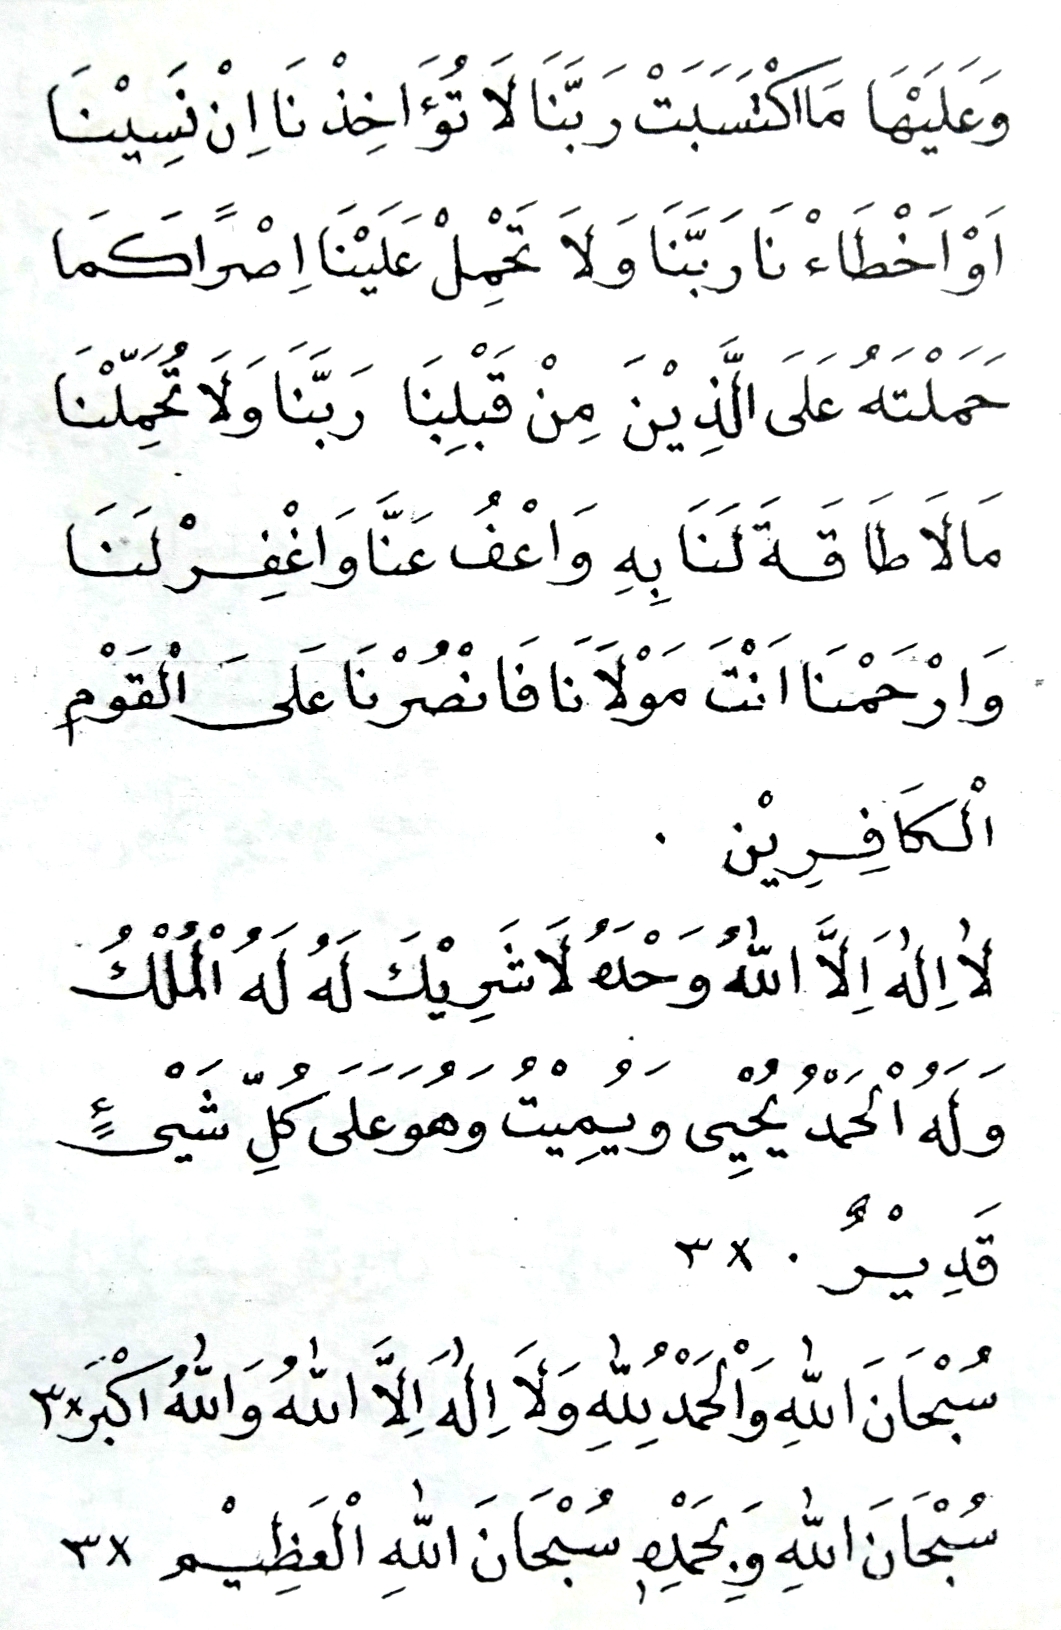 وَعَلَيْهَا مَااكْتَسَبَتْ رَبَّنَا لَا تُؤَاخِذْنَا اِنْ نَسِيْنَا
اَوْ اَخْطَاءْنَا رَبَّنَا وَلَا تَحْمِلْ عَلَيْنَا اِصْرًا كَمَا
حَمَلْتَهُ عَلَى الَّذِيْنَ مِنْ قَبْلِنَا رَبَّنَا وَلَا تُحَمِّلْنَا
مَالَا طَاقَةَ لَنَا بِهِ وَاعْفُ عَنَّا وَاغْفِرْ لَنَا
وَارْحَمْنَا اَنْتَ مَوْلَانَا فَانْصُرْنَا عَلَى الْقَوْمِ
الْكَافِرِيْن .
لَا اِلٰهَ اِلَّا اللّٰهُ وَحْدَهُ لَا شَرِيْكَ لَهُ لَهُ الْمُلْكُ
وَلَهُ الْحَمْدُ يُحْيِى وَيُمِيْتُ وَهُوَ عَلَى كُلِّ شَيْئٍ
قَدِيْرٌ . ×٣
سُبْحَانَ اللّٰهِ وَالْحَمْدُ لِلّٰهِ وَلَا اِلٰهَ اِلَّا اللّٰهُ وَاللّٰهُ اَكْبَر ×٣
سُبْحَانَ اللّٰهِ وَبِحَمْدِهٖ سُبْحَانَ اللّٰهِ الْعَظِيْم ×٣